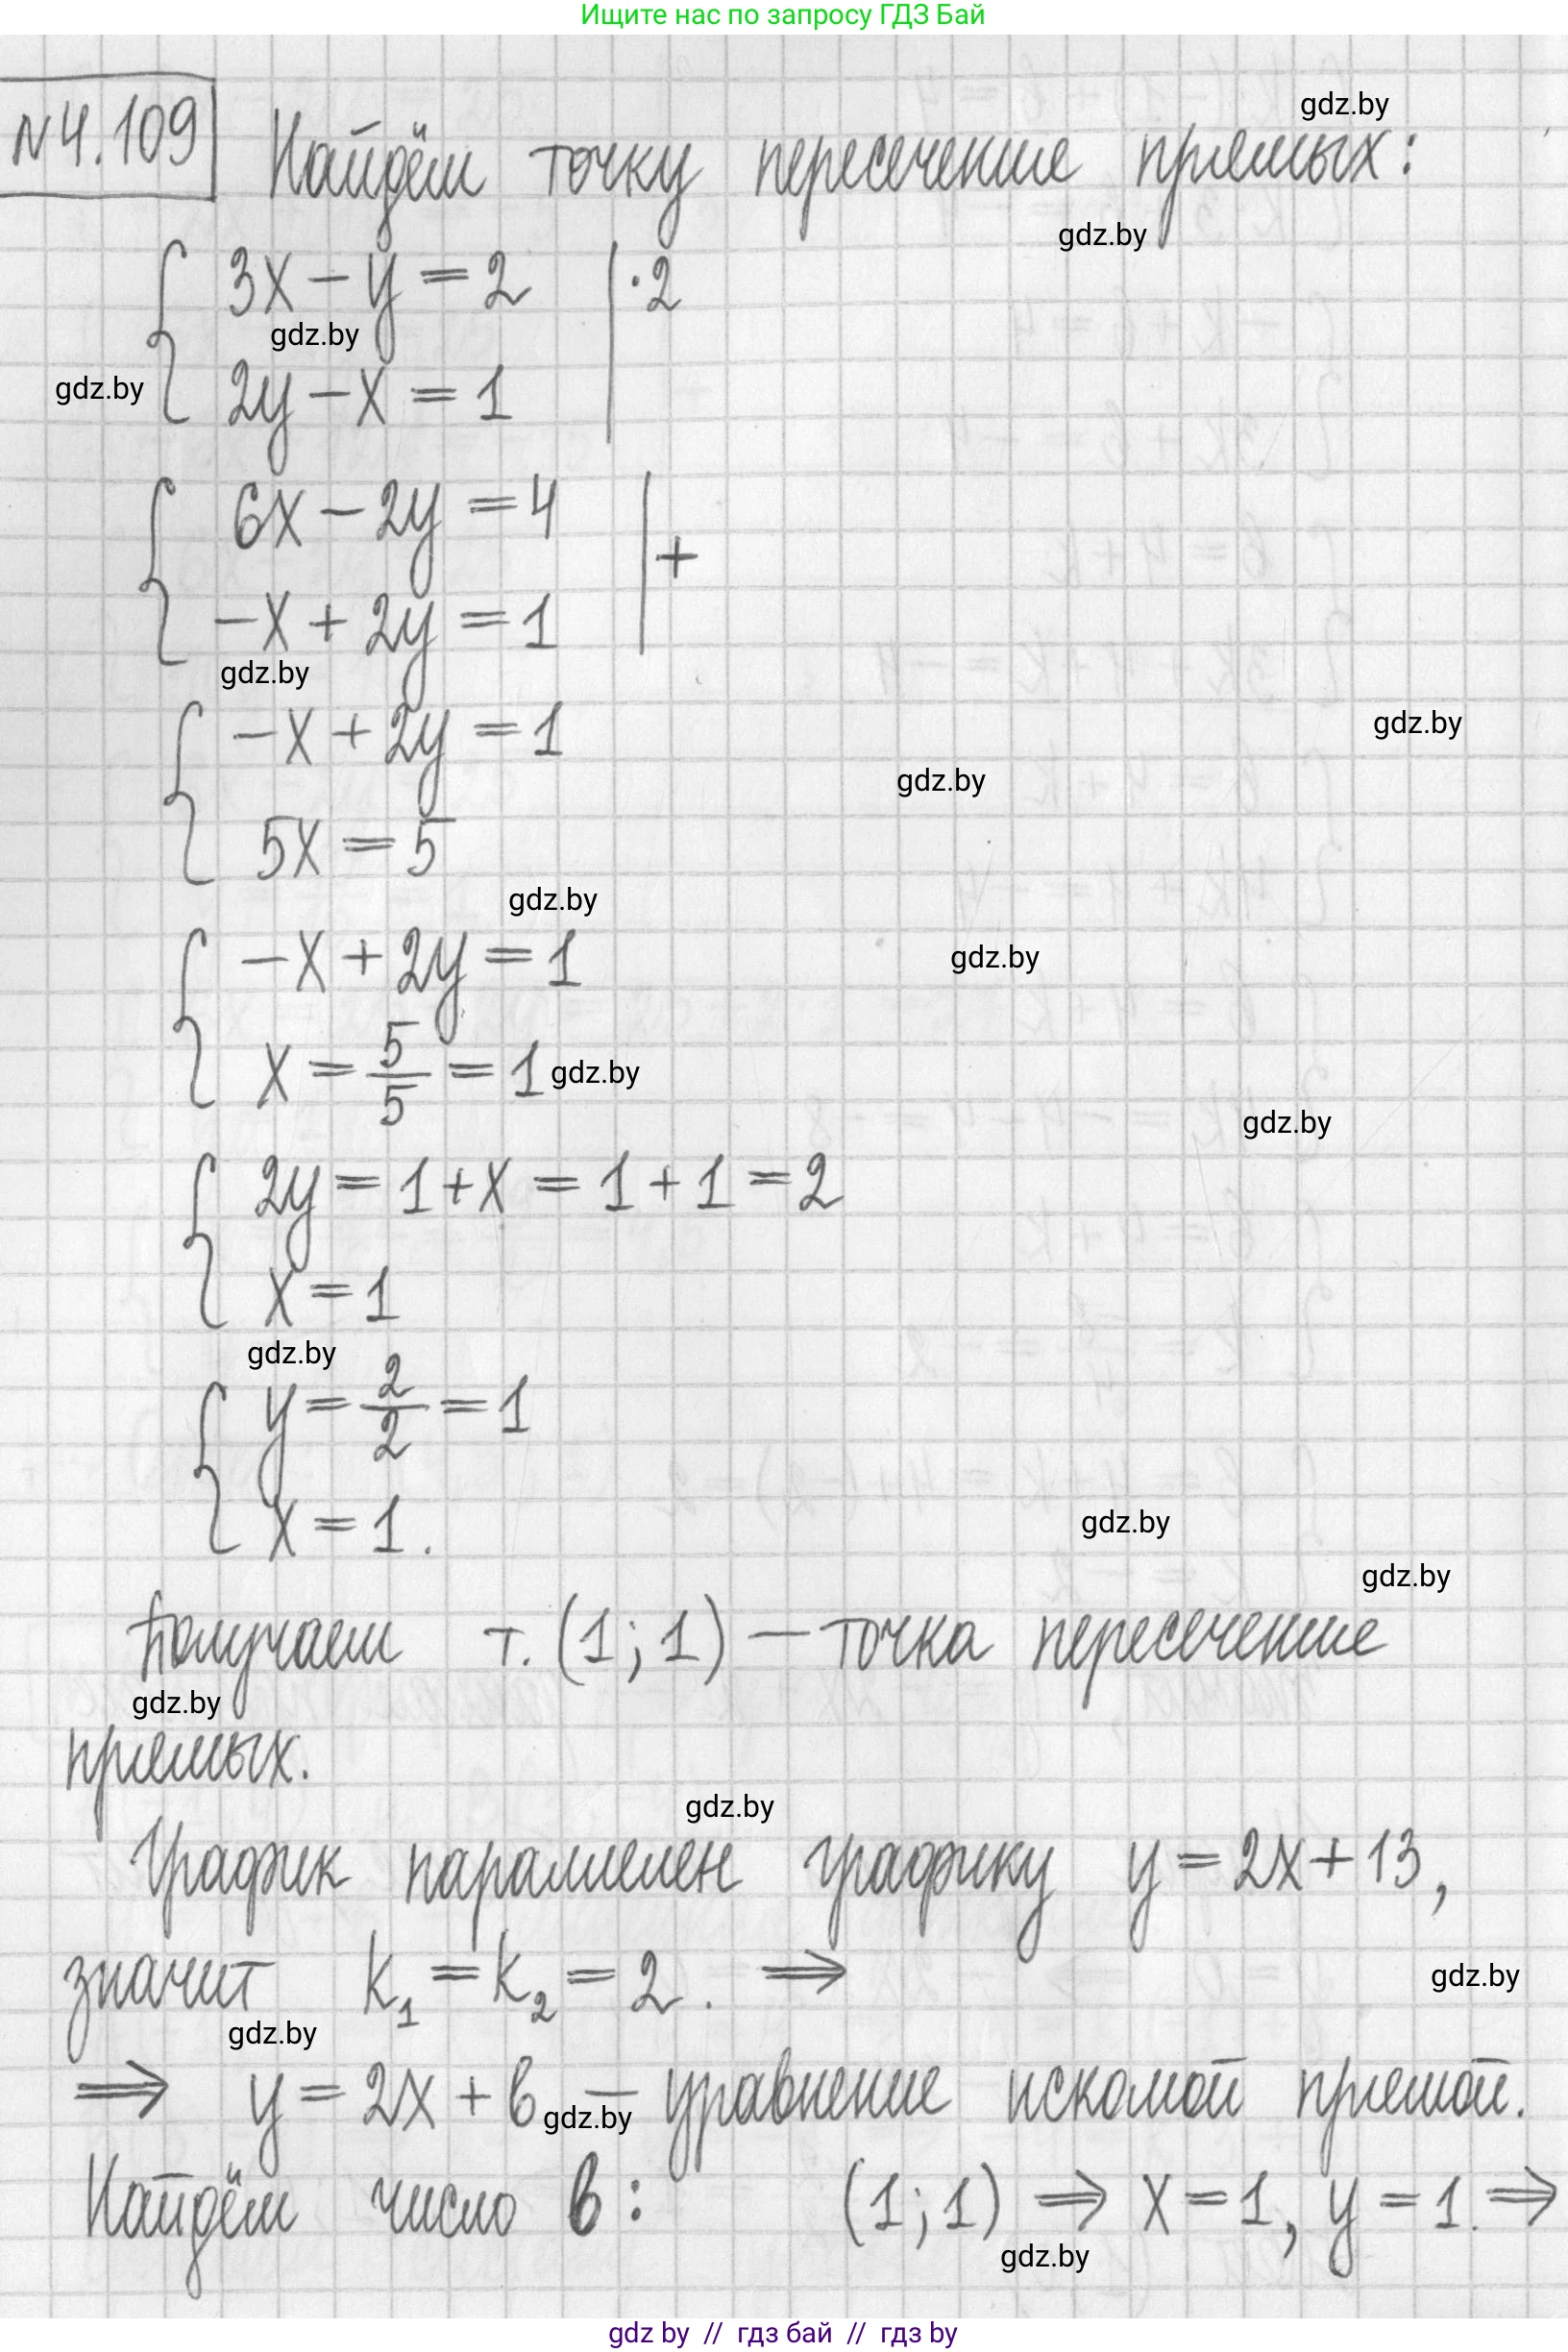 Ищите нас по запросу ГДЗ Бай
gdz.by
N4.109 Найдём точку пересечение прямых:
gdz.by
{ 3x - y = 2 | ·2
gdz.by
gdz.by
2y - x = 1
{ 6x - 2y = 4 | +
-x + 2y = 1
gdz.by
{ -x + 2y = 1
gdz.by
gdz.by
5x = 5
gdz.by
{ -x + 2y = 1
gdz.by
x = 5/5 = 1
gdz.by
gdz.by
{ 2y = 1 + x = 1 + 1 = 2
x = 1
gdz.by
{ y = 2/2 = 1
x = 1.
gdz.by
gdz.by
Получаем т. (1; 1) — точка пересечение
gdz.by
прямых.
gdz.by
График параллелен графику y = 2x + 13,
значит k₁ = k₂ = 2. ⇒
gdz.by
gdz.by
⇒ y = 2x + b — уравнение искомой прямой.
gdz.by
Найдём число b: (1; 1) ⇒ x = 1, y = 1. ⇒
gdz.by
gdz by // гдз бай // гдз by